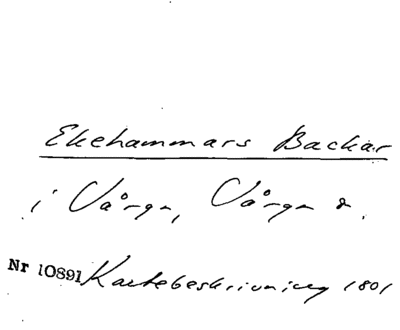 Ekehammars Backar
i Vårga, Vårga
Nr 10891 Kartebeskrivning 1801